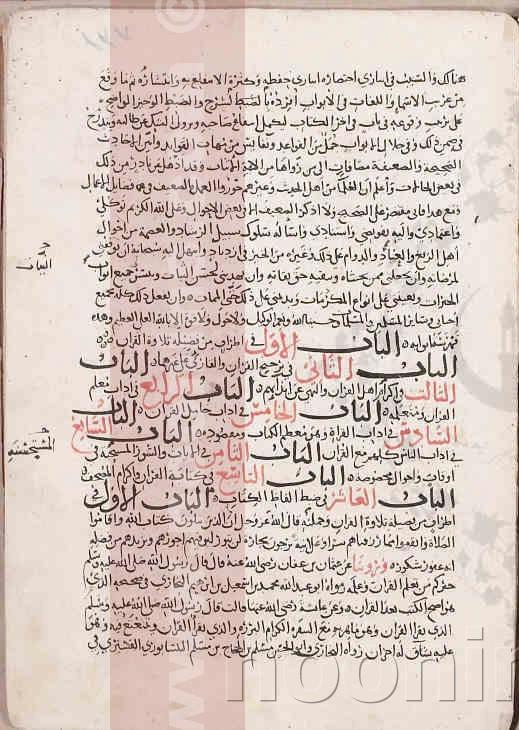 هنالك والسبب في إيثاري اختصاره إيثاري حفظه وكثرة الانتفاع به وانتشاره ثم ما وقع
من غريب الأسماء واللغات في الأبواب أفرده بالضبط والشرح والضبط الوجيز الواضح
على ترتيب وقوعه في باب في آخر الكتاب ليكمل انتفاع صاحبه ويزول الشك عن طالبه ويندرج
في ضمن ذلك وفي خلال الأبواب جمل من القواعد ونفائس من مهمات الفوائد وأبين الأحاديث
الصحيحة والضعيفة مضافات إلى من رواها من الأئمة الأثبات وقد أذهل عن نادر من ذلك
في بعض الحالات واعلم أن العلماء من أهل الحديث وغيرهم جوزوا العمل بالضعيف في فضائل الأعمال
ومع هذا فإني أقتصر على الصحيح ولا أذكر الضعيف إلا في بعض الأحوال وعلى الله الكريم توكلي
واعتمادي وإليه تفويضي واستنادي وأسأله سلوك سبيل الرشاد والعصمة من أحوال
أهل الزيغ والعناد والدوام على ذلك وغيره من الخير في ازدياد وأبتهل إليه سبحانه أن يوفقني
لمرضاته وأن يجعلني ممن يخشاه ويتقيه حق تقاته وأن يهديني لحسن النيات وييسر لي جميع أنواع
الخيرات ويعينني على أنواع المكرمات ويديمني على ذلك حتى الممات وأن يفعل ذلك كله بجميع
أحبابي وسائر المسلمين والمسلمات حسبنا الله ونعم الوكيل ولا حول ولا قوة إلا بالله العلي العظيم وهذه
فهرست أبوابه الباب الأول في أطراف من فضيلة تلاوة القرآن
الباب الثاني في ترجيح القرآن والقارئ على غيرهما الباب
الثالث في إكرام أهل القرآن والنهي عن أذاهم الباب الرابع في آداب معلم
القرآن ومتعلمه الباب الخامس في آداب حامل القرآن الباب
السادس في آداب القراءة وهو معظم الكتاب ومقصوده الباب السابع
في آداب الناس كلهم مع القرآن الباب الثامن في الآيات والسور المستحبة في
أوقات وأحوال مخصوصة الباب التاسع في كتابة القرآن وإكرام المصحف
الباب العاشر في ضبط ألفاظ الكتاب الباب الأول في
أطراف من فضيلة تلاوة القرآن وحملته قال الله عز وجل إن الذين يتلون كتاب الله وأقاموا
الصلاة وأنفقوا مما رزقناهم سرا وعلانية يرجون تجارة لن تبور ليوفيهم أجورهم ويزيدهم من فضله
إنه غفور شكور وروينا عن عثمان بن عفان رضي الله عنه قال قال رسول الله صلى الله عليه وسلم
خيركم من تعلم القرآن وعلمه رواه أبو عبد الله محمد بن إسمعيل بن إبراهيم البخاري في صحيحه الذي
هو أصح الكتب بعد القرآن وعن عائشة رضي الله عنها قالت قال رسول الله صلى الله عليه وسلم
الذي يقرأ القرآن وهو ماهر به مع السفرة الكرام البررة والذي يقرأ القرآن ويتتعتع فيه وهو
عليه شاق له أجران رواه البخاري وأبو الحسين مسلم بن الحجاج بن مسلم النيسابوري القشيري في
noonir